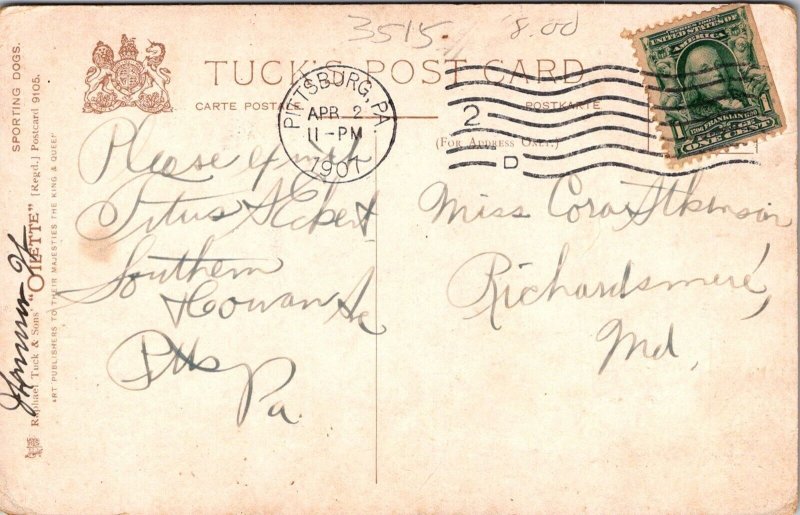 3515
8.00
TUCK'S POST CARD
CARTE POSTALE.
POSTKARTE
(FOR ADDRESS ONLY.)
PITTSBURG, PA.
APR 2
11-PM
1907
2
D
UNITED STATES OF AMERICA
FRANKLIN
1 1
ONE CENT
Please
Titus Eckert
Southern
Cowan
Pitts
Pa.
Miss Cora Atkinson
Richardsmere,
Md,
SPORTING DOGS.
Raphael Tuck & Sons' "OILETTE" [Regd.] Postcard 9105.
ART PUBLISHERS TO THEIR MAJESTIES THE KING & QUEEN